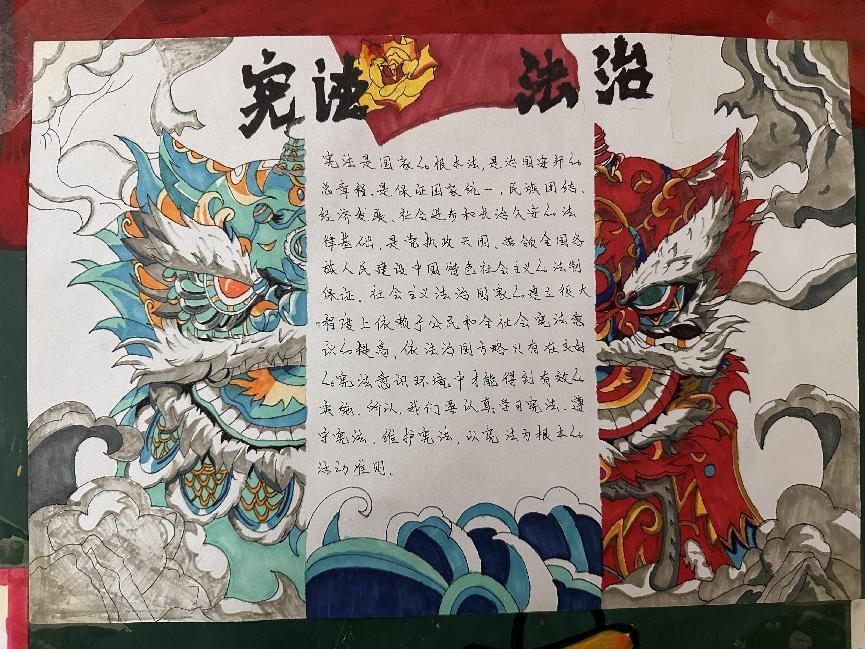 宪法 法治
宪法是国家的根本法,是治国安邦的
总章程,是保证国家统一,民族团结,
经济发展,社会进步和长治久安的法
律基础,是党执政兴国,带领全国各
族人民建设中国特色社会主义的法制
保证。社会主义法治国家的建立很大
程度上依赖于公民和全社会宪法意
识的提高,依法治国方略只有在良好
的宪法意识环境中才能得到有效的
实施。所以,我们要认真学习宪法,遵
守宪法,维护宪法,以宪法为根本的
活动准则。